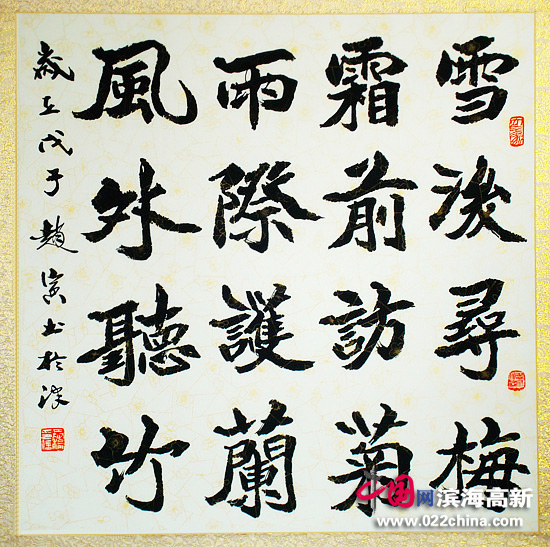 雪後尋梅
霜前訪菊
雨際護蘭
風外聽竹
歲在戊子趙寅書於津
中国网 滨海高新
www.022china.com